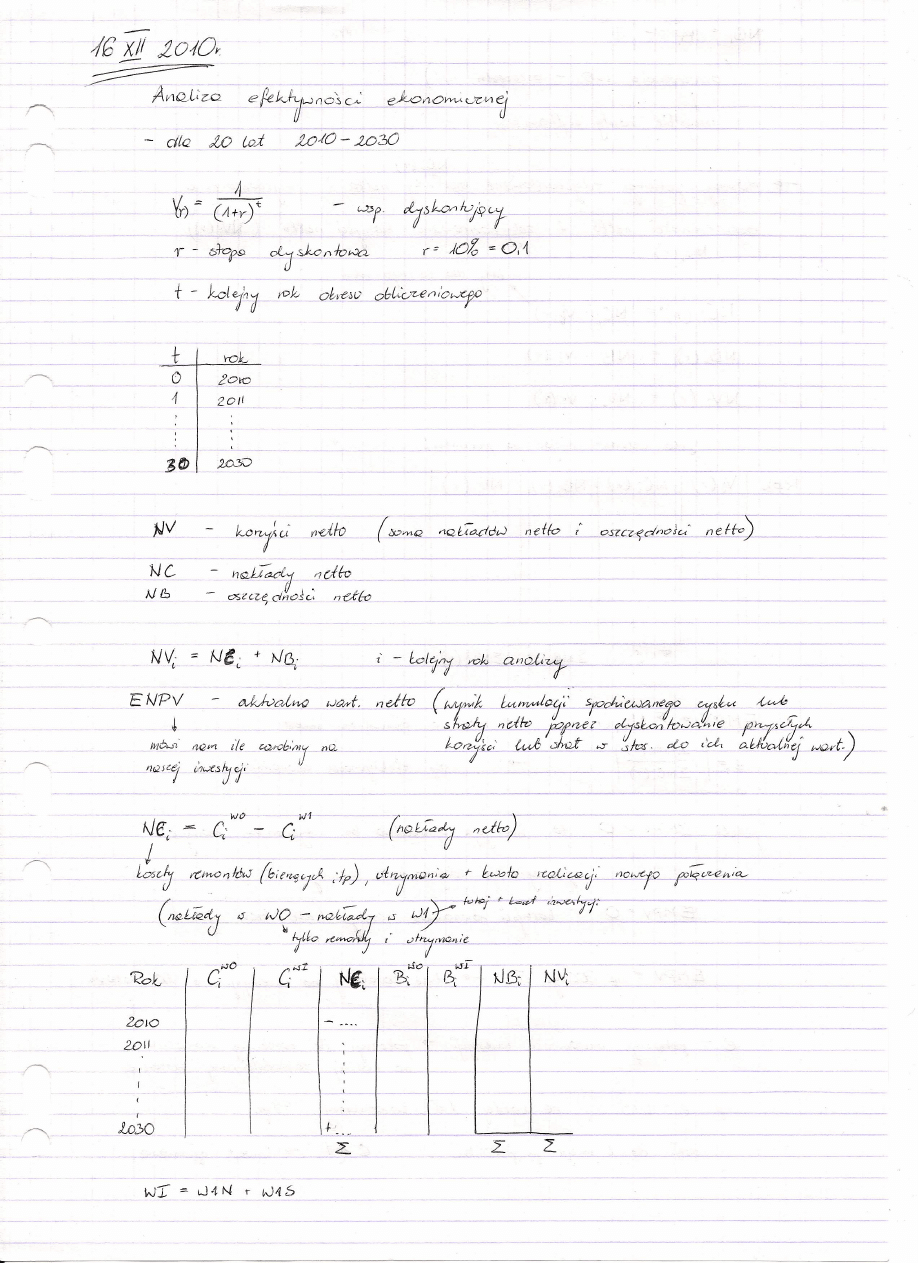 16 XII 2010r.
Analiza efektywności ekonomicznej
- dla 20 lat 2010 - 2030
V(r) = 1/(1+r)^t - wsp. dyskontujący
r - stopa dyskontowa r = 10% = 0,1
t - kolejny rok okresu obliczeniowego
t | rok
0 | 2010
1 | 2011
30 | 2030
NV - korzyści netto (suma nakładów netto i oszczędności netto)
NC - nakłady netto
NB - oszczędności netto
NV_i = NC_i + NB_i i - kolejny rok analizy
ENPV - aktualna wart. netto (wynik kumulacji spodziewanego zysku lub
straty netto poprzez dyskontowanie przyszłych
korzyści lub strat w stos. do ich aktualnej wart.)
↓
mówi nam ile zarobimy na
naszej inwestycji
NC_i = C_i^W0 - C_i^W1 (nakłady netto)
↓
koszty remontów (bieżących itp), utrzymania + kwota realizacji nowego połączenia
(nakłady w W0 - nakłady w W1) → tutaj + koszt inwestycji
tylko remonty i utrzymanie
Rok | C_i^W0 | C_i^WI | NC_i | B_i^W0 | B_i^WI | NB_i | NV_i
2010 - ....
2011
2030 + ...
Σ Σ Σ
WI = W1N + W1S